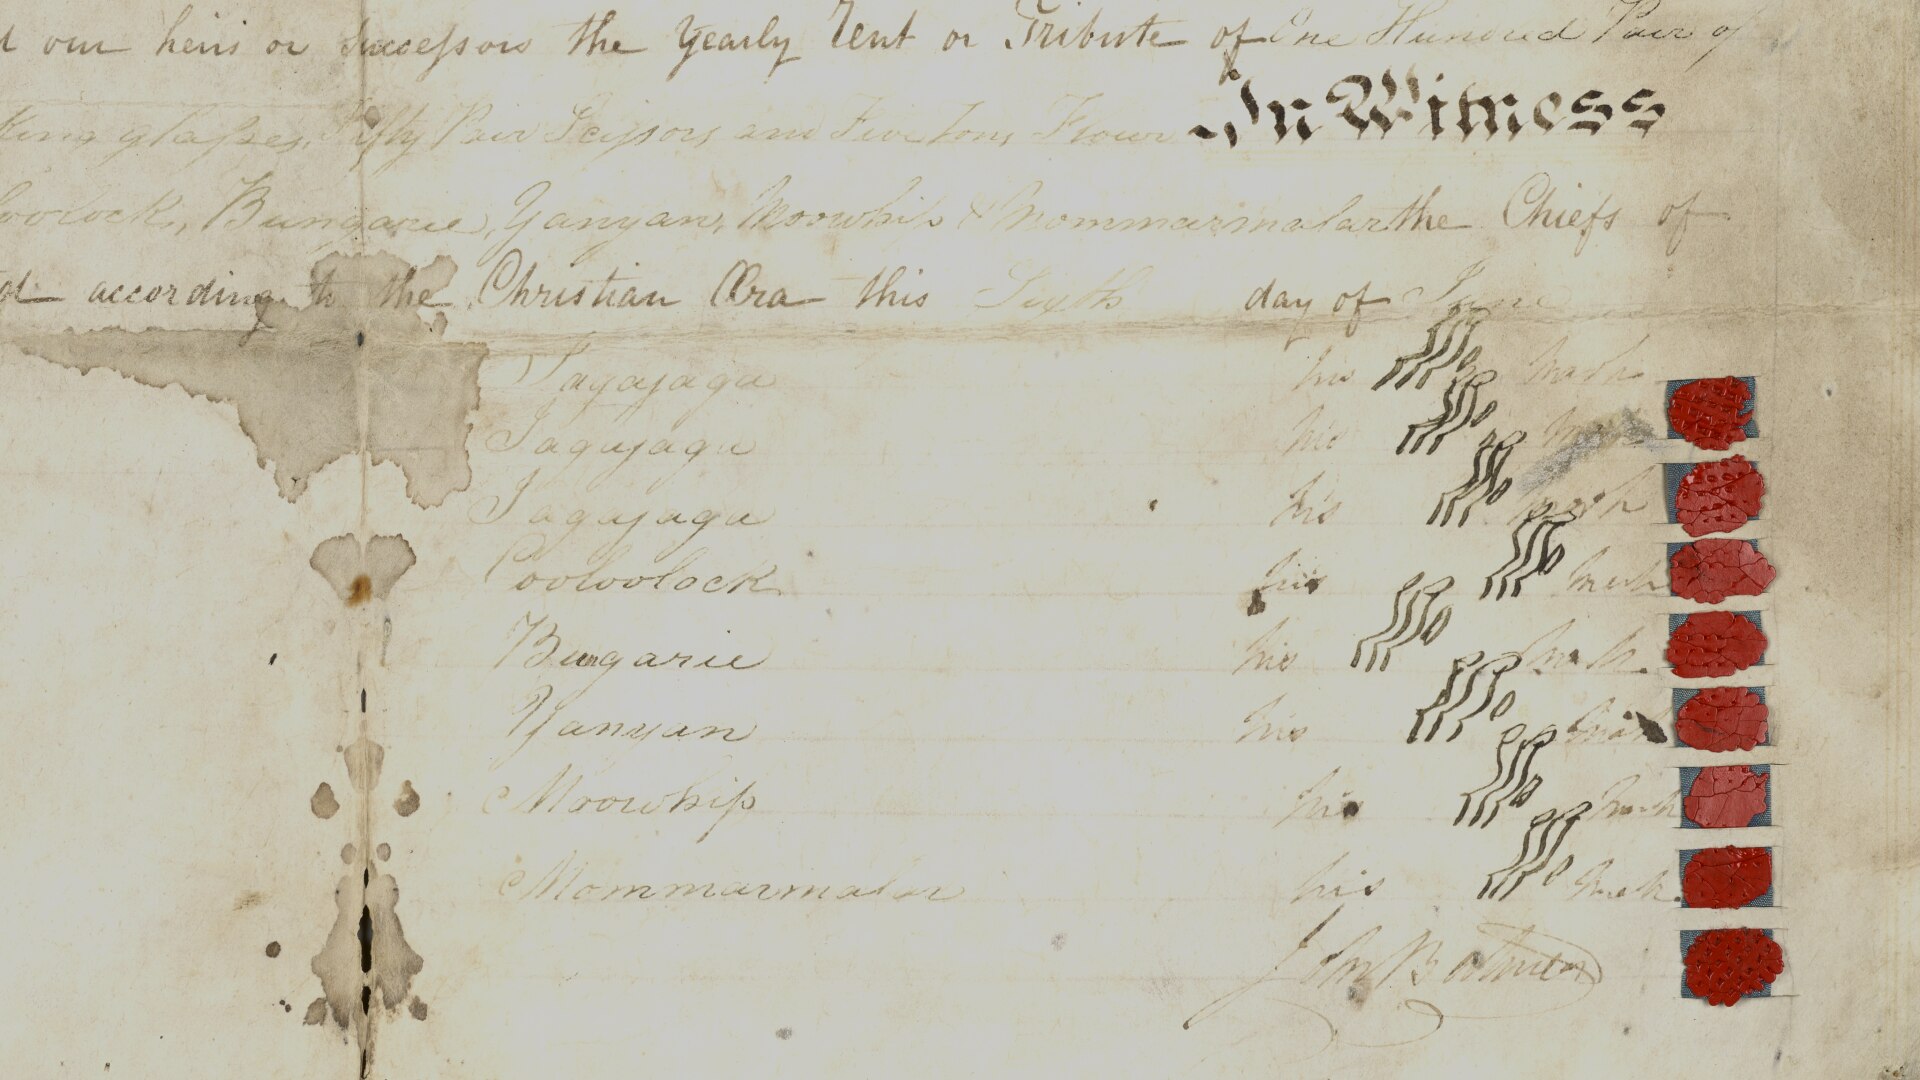 our heirs or Successors the Yearly Rent or Tribute of One Hundred Pair of
king glasses, Fifty Pair Scissors and Five Tons Flour In Witness
Bungarie, Yanyan, Moowhip & Mommarmalar the Chiefs of
according to the Christian Æra this Sixth day of June
Jagajaga his mark
Jagajaga his mark
Jagajaga his mark
Cooloolock his mark
Bungarie his mark
Yanyan his mark
Moowhip his mark
Mommarmalar his mark
John Batman